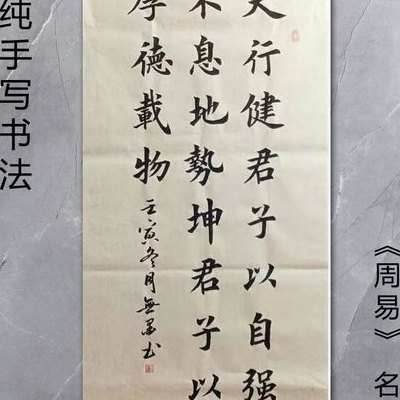 天行健君子以自强
不息地勢坤君子以
厚德載物
壬寅冬月無墨书
纯手写书法
《周易》 名